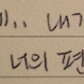 .. 내가
너의 편